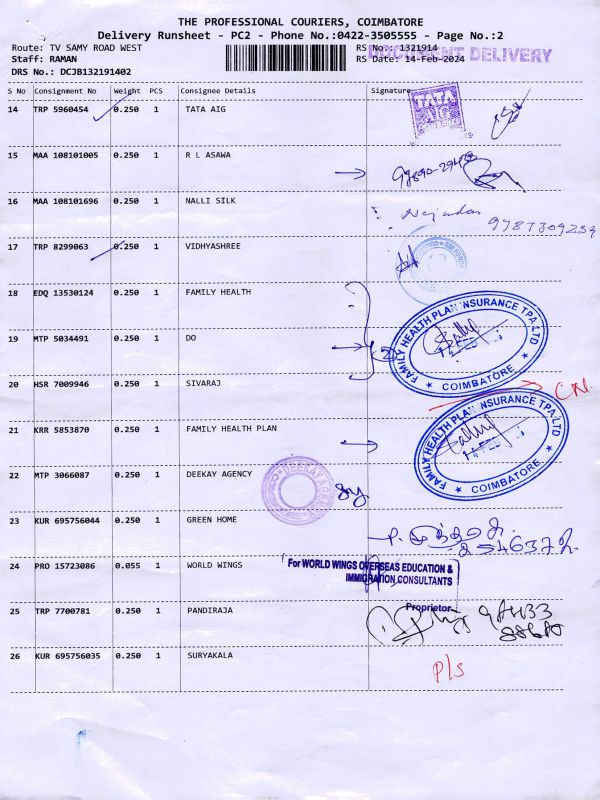 THE PROFESSIONAL COURIERS, COIMBATORE
Delivery Runsheet - PC2 - Phone No.:0422-3505555 - Page No.:2
Route: TV SAMY ROAD WEST
Staff: RAMAN
DRS No.: DCJB132191402
RS No.: 1321914
RS Date: 14-Feb-2024
DOCUMENT DELIVERY
S No Consignment No Weight PCS Consignee Details Signature
14 TRP 5960454 0.250 1 TATA AIG
TATA
AIG
15 MAA 108101005 0.250 1 R L ASAWA
16 MAA 108101696 0.250 1 NALLI SILK
9787309234
17 TRP 8299063 0.250 1 VIDHYASHREE
18 EDQ 13530124 0.250 1 FAMILY HEALTH
FAMILY HEALTH PLAN INSURANCE TPA LTD
★ COIMBATORE ★
19 MTP 5034491 0.250 1 DO
(2)
20 HSR 7009946 0.250 1 SIVARAJ
21 KRR 5853870 0.250 1 FAMILY HEALTH PLAN
FAMILY HEALTH PLAN INSURANCE TPA LTD
★ COIMBATORE ★
22 MTP 3066087 0.250 1 DEEKAY AGENCY
23 KUR 695756044 0.250 1 GREEN HOME
24 PRO 15723086 0.055 1 WORLD WINGS
For WORLD WINGS OVERSEAS EDUCATION &
IMMIGRATION CONSULTANTS
Proprietor
25 TRP 7700781 0.250 1 PANDIRAJA
26 KUR 695756035 0.250 1 SURYAKALA
P/S